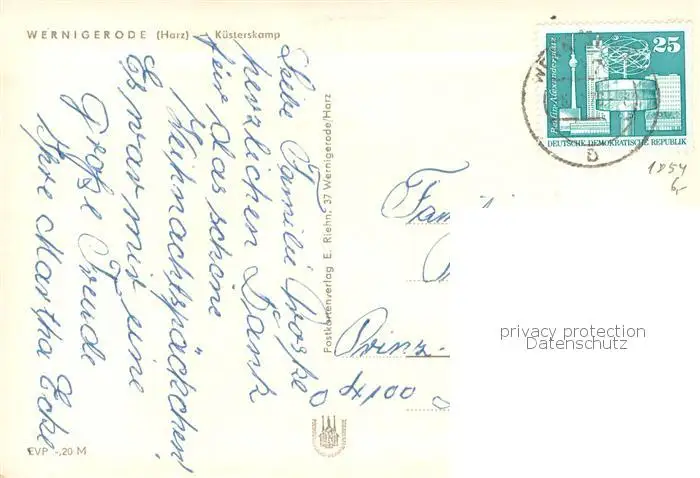 WERNIGERODE (Harz) — Küsterskamp
Liebe Familie Proske
herzlichen Dank
für das schöne
Weihnachtspäckchen
Es war mir eine
Große Freude
Ihre Martha Ecke
EVP -,20 M
Postkartenverlag E. Riehn, 37 Wernigerode/Harz
25
Berlin-Alexanderplatz
DEUTSCHE DEMOKRATISCHE REPUBLIK
b
1854
6,-
Fam
Prinz-
4100 D
privacy protection
Datenschutz